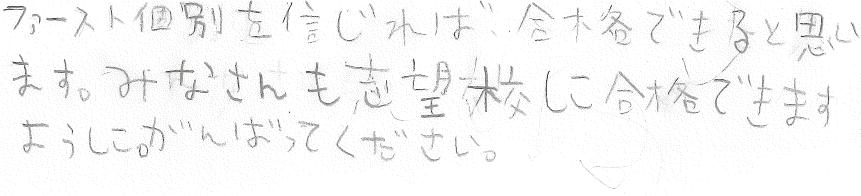 ファースト個別を信じれば、合格できると思い
ます。みなさんも志望校に合格できます
ように。がんばってください。